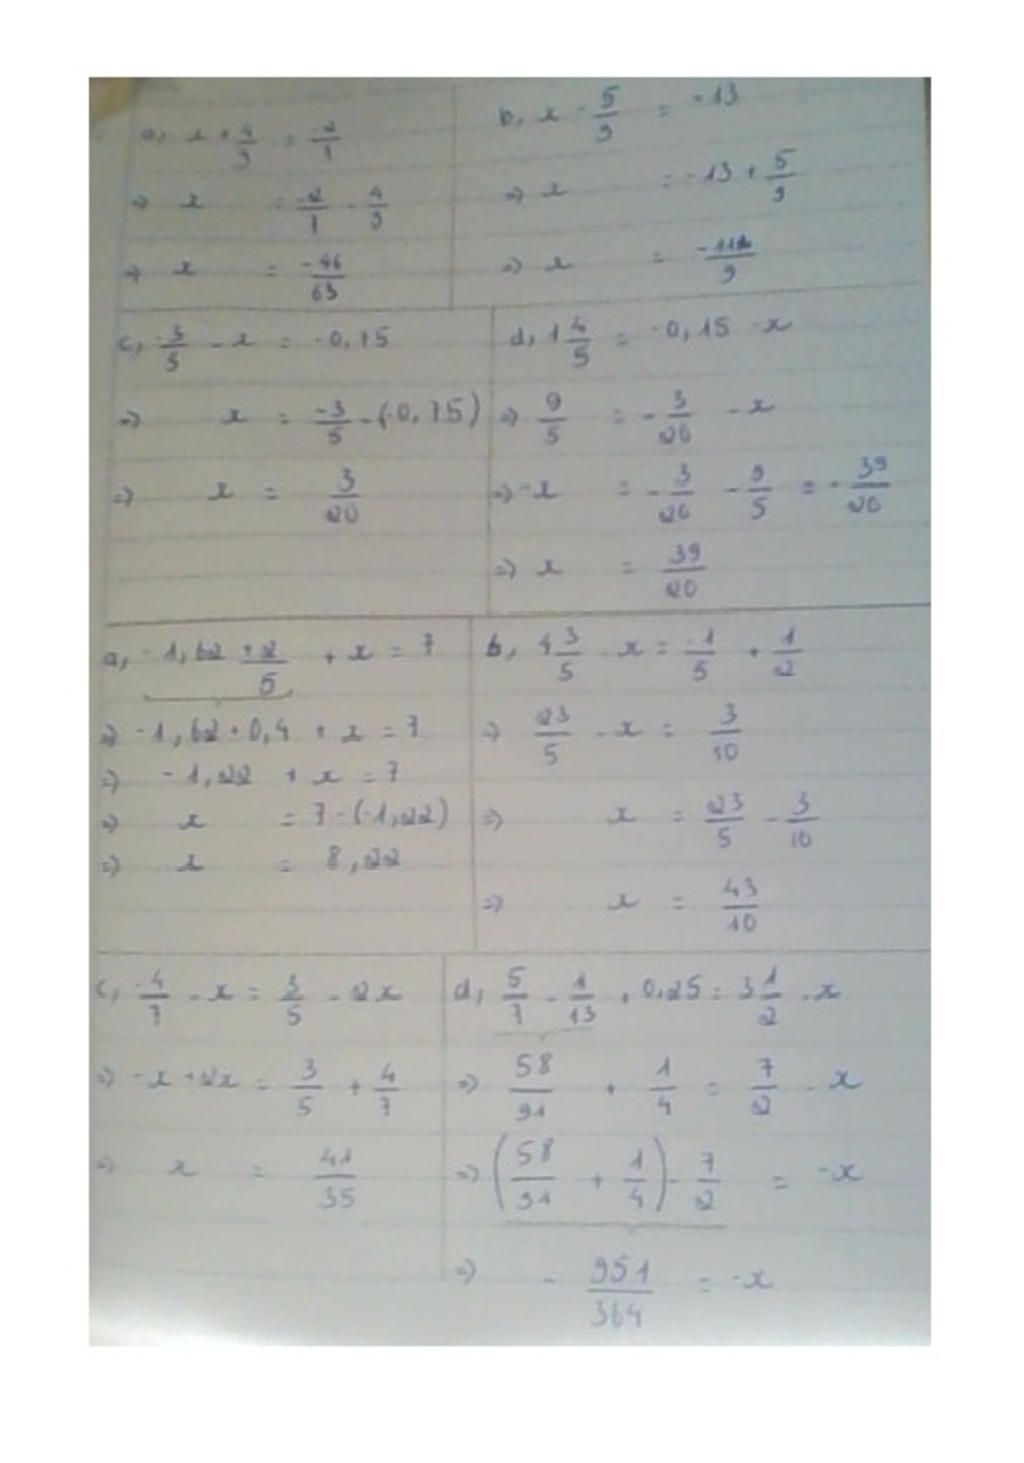 a, x + 4/9 = -2/7
=> x = -2/7 - 4/9
=> x = -46/63
b, x - 5/9 = -13
=> x = -13 + 5/9
=> x = -112/9
c, -3/5 - x = -0,75
=> x = -3/5 - (-0,75)
=> x = 3/20
d, 1 4/5 = -0,15 - x
=> 9/5 = - 3/20 - x
=> -x = - 3/20 - 9/5 = - 39/20
=> x = 39/20
a, -1,62 + 2/5 + x = 7
=> -1,62 + 0,4 + x = 7
=> -1,22 + x = 7
=> x = 7 - (-1,22)
=> x = 8,22
b, 4 3/5 - x = -1/5 + 1/2
=> 23/5 - x = 3/10
=> x = 23/5 - 3/10
=> x = 43/10
c, -4/7 - x = 3/5 - 2x
=> -x + 2x = 3/5 + 4/7
=> x = 41/35
d, 5/7 - 1/13 + 0,25 = 3 1/2 - x
=> 58/91 + 1/4 = 7/2 - x
=> (58/91 + 1/4) - 7/2 = -x
=> - 951/364 = -x